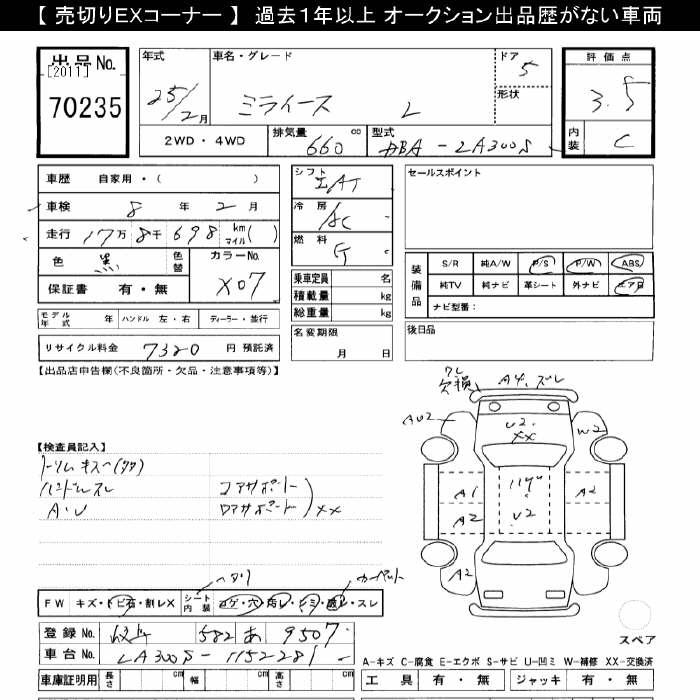 【 売切りEXコーナー 】 過去1年以上 オークション出品歴がない車両
出品No.
[2011]
70235
年式
25/2月
車名・グレード
ミライース L
ドア
5
形状
評価点
3.5
内装
C
2WD・4WD
排気量
660
cc
型式
DBA - LA300S
車歴 自家用・( )
車検 8 年 2 月
走行 17万 8千 698 km マイル ( )
色 黒
色替
カラーNo.
X07
保証書 有・無
シフト
IAT
冷房
AC
燃料
G
セールスポイント
乗車定員 名
積載量 kg
総重量 kg
装備品
S/R 純A/W P/S P/W ABS
純TV 純ナビ 革シート 外ナビ エアB
ナビ型番:
モデル年式 年 ハンドル 左・右 ディーラー・並行
名変期限
月 日
後日品
リサイクル料金 7320 円 預託済
【出品店申告欄(不良箇所・欠品・注意事項等)】
ワレ
欠損
A4. ズレ
AU2
U2.
XX
W2
【検査員記入】
ハンドルスレ
A・U
コアサポート
ロアサポート
XX
A1
A2
U2
A2
A2
ヘタリ
カーペット
FW キズ・トビ石・割レX
シート内装
コゲ・穴・汚レ・シミ・破レ・スレ
登録No. 582 あ 9507
車台No. LA300S - 1152281
スペア
A-キズ C-腐食 E-エクボ S-サビ U-凹ミ W-補修 XX-交換済
車庫証明用 長さ cm 幅 cm 高さ cm
工具 有・無 ジャッキ 有・無